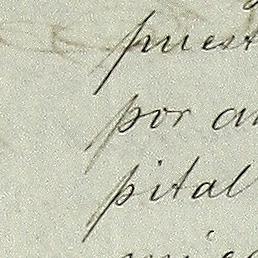 puest
por an
pital